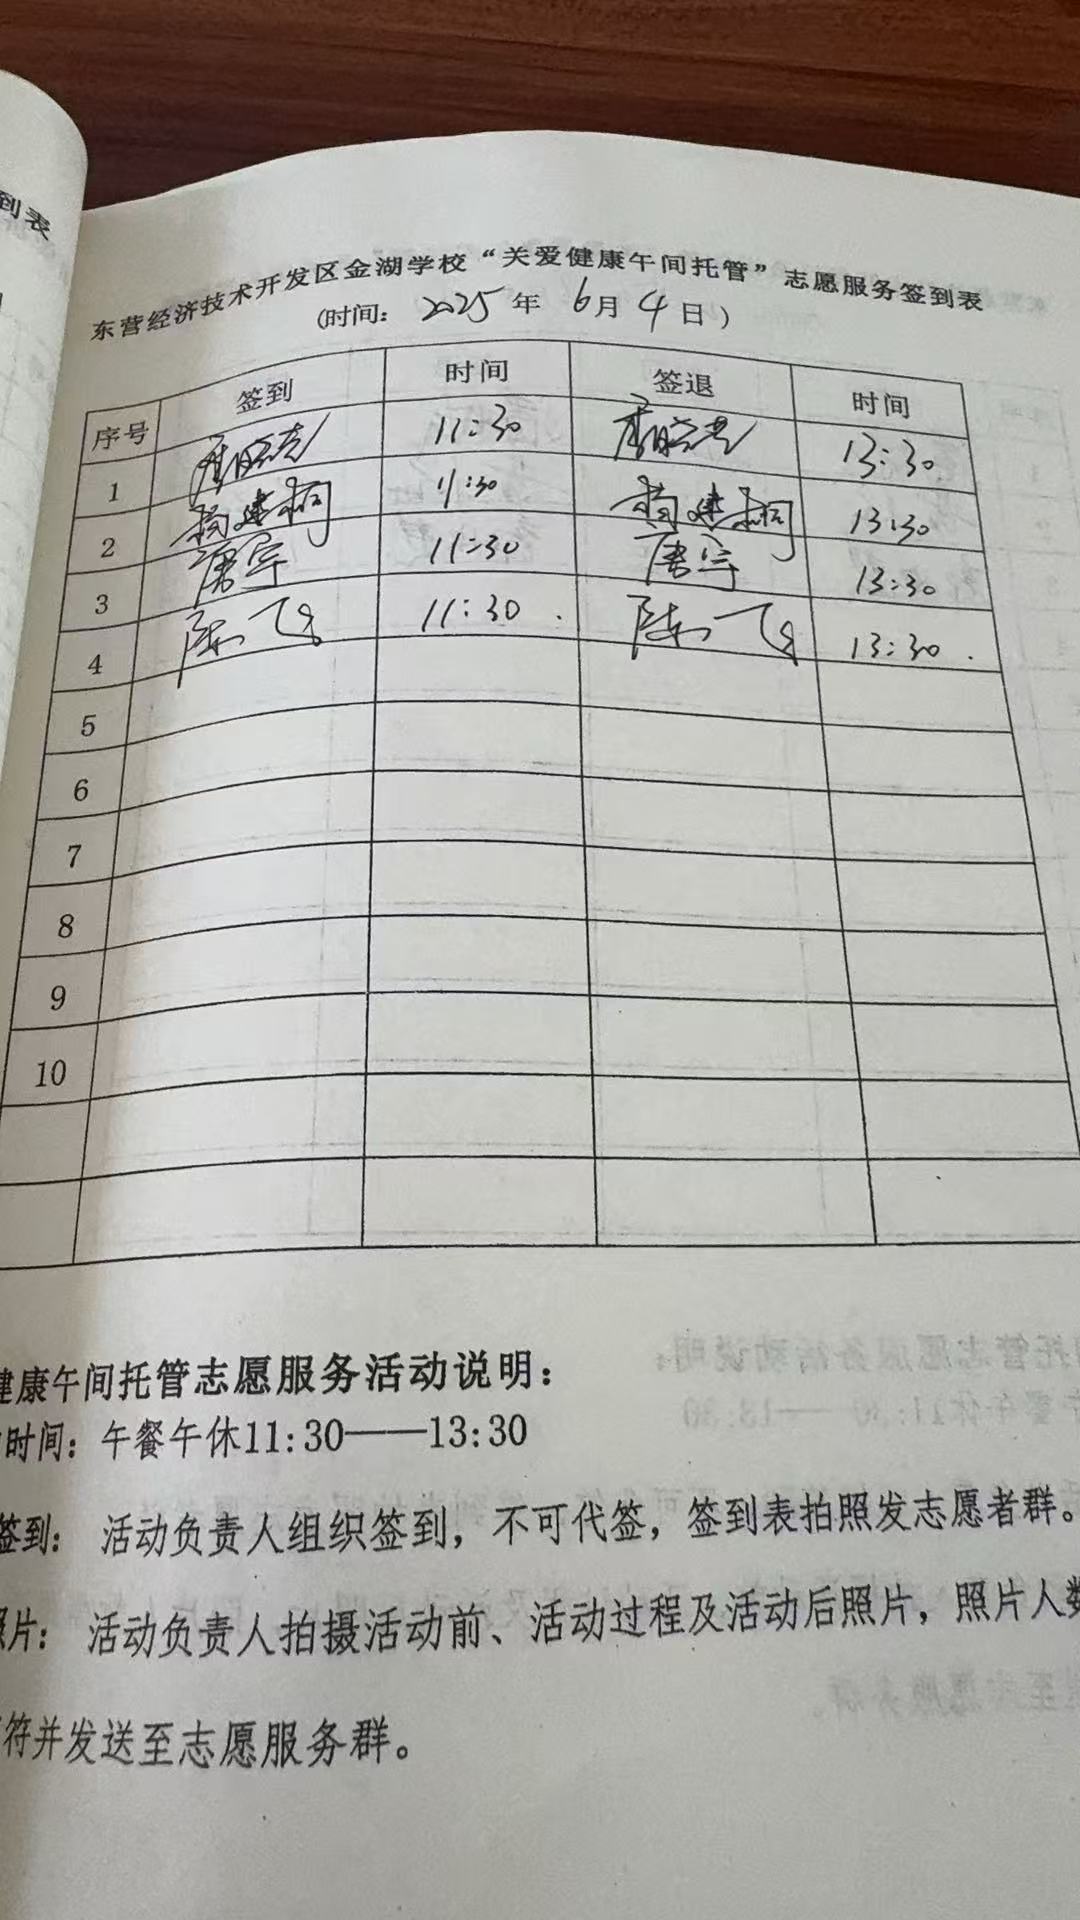 到表
东营经济技术开发区金湖学校“关爱健康午间托管”志愿服务签到表
(时间: 2025 年 6月 4 日)
序号 签到 时间 签退 时间
1 11:30 13:30
2 杨建桐 11:30 杨建桐 13:30
3 唐宇 11:30 唐宇 13:30
4 陈飞 11:30. 陈飞 13:30.
5
6
7
8
9
10
健康午间托管志愿服务活动说明:
时间: 午餐午休11:30——13:30
签到: 活动负责人组织签到，不可代签，签到表拍照发志愿者群。
照片: 活动负责人拍摄活动前、活动过程及活动后照片，照片人数
符并发送至志愿服务群。